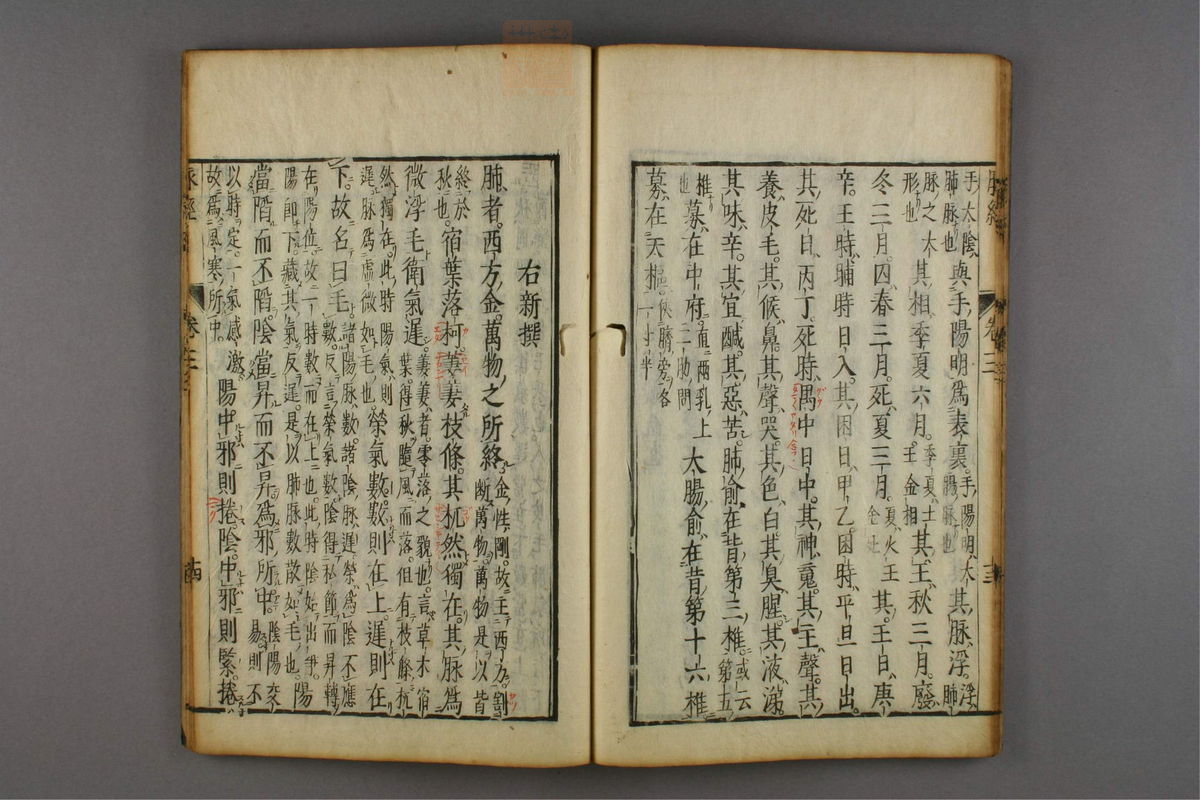 手太陰與手陽明爲表裏。手陽明大其脉浮。浮
肺脉也 腸脉也 肺
脉之大其相季夏六月。季夏土其王秋三月。廢
形也 王金相
冬三月。囚春三月。死夏三月。夏火王其王日庚
金
辛。王時晡時日入。其困日甲乙。困時平旦日出。
其死日丙丁。死時禺中日中。其神䰟。其主聲。其
養皮毛。其候鼻。其聲哭。其色白。其臭腥。其液涕。
其味辛。其宜鹹。其惡苦。肺俞在背第三椎。或云第五
椎也 募在中府。直兩乳上二肋間 大腸俞在背第十六椎
募在天樞。俠臍傍各一寸半
右新撰
肺者。西方金。萬物之所終。金性剛。故王西方。割斷萬物。萬物是以皆
終於秋也。宿葉落柯。萋萋枝條。其杌然獨在。其脉爲
微浮毛衛氣遲。萋萋者。零落之貌也。言草木宿葉。得秋隨風而落。但有枝條杌
然獨在。此時陽氣則遲脉爲虛微如毛也 榮氣數。數則在上。遲則在
下。故名曰毛。諸陽脉數。諸陰脉遲。榮爲陰不應數。反言榮氣數。陰得秋節而昇轉
在陽位。故一時數而在上也。此時陰始出爭。陽
陽即下。藏其氣反遲。是以肺脉數散如毛也。陽
當䧟而不䧟。陰當昇而不昇。爲邪所中。陰陽交易則不
以時定。二氣感激。故爲風寒所中。陽中邪則捲。陰中邪則緊。捲
脉經 卷三 十三
卷三 十四